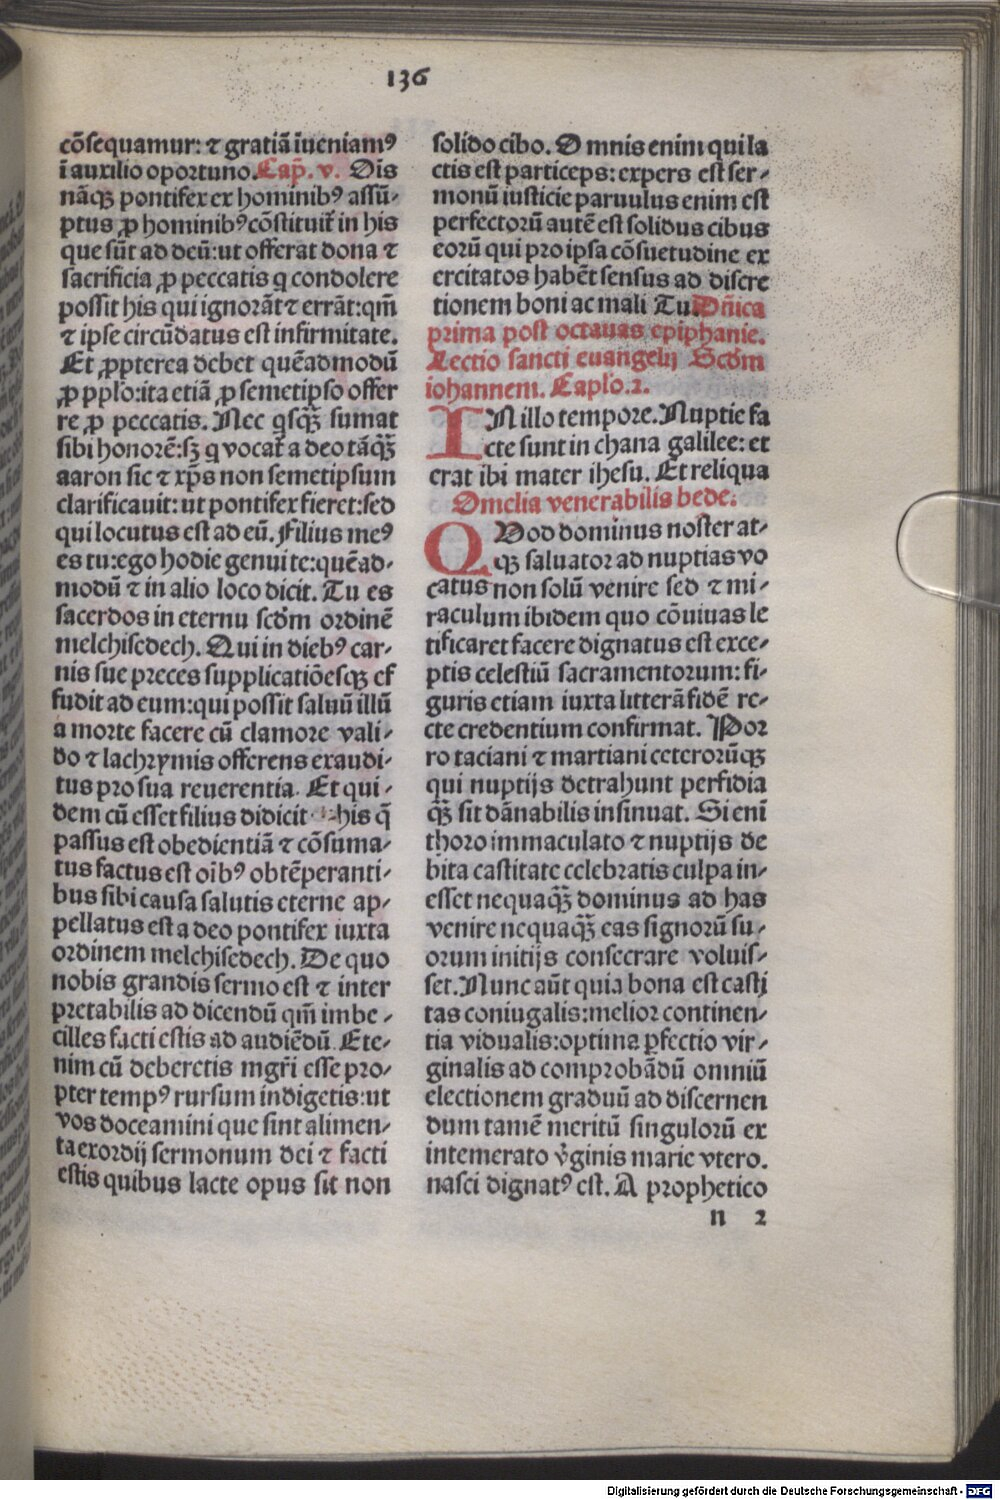 136
cõsequamur: ⁊ gratiã iueniamꝰ
ĩ auxilio oportuno. Cap̃. v. Oĩs
nãqꝫ pontifex ex hominibꝰ assũ-
ptus ꝓ hominibꝰ cõstituit̃ in his
que sũt ad deũ: ut offerat dona ⁊
sacrificia ꝓ peccatis q condolere
possit his qui ignorãt ⁊ errãt: qm̃
⁊ ipse circũdatus est infirmitate.
Et ꝓpterea debet quẽadmodũ
ꝓ pplo: ita etiã ꝓ semetipso offer
re ꝓ peccatis. Nec qsqꝫ̃ sumat
sibi honorẽ: sꝫ q vocat̃ a deo tãqꝫ̃
aaron sic ⁊ xp̃s non semetipsum
clarificauit: ut pontifex fieret: sed
qui locutus est ad eũ. Filius meꝰ
es tu: ego hodie genui te: quẽad-
modũ ⁊ in alio loco dicit. Tu es
sacerdos in eternu scd̃m ordinẽ
melchisedech. Qui in diebꝰ car-
nis sue preces supplicatiõesqꝫ ef
fudit ad eum: qui possit saluũ illũ
a morte facere cũ clamore vali-
do ⁊ lachrymis offerens exaudi-
tus pro sua reuerentia. Et qui-
dem cũ esset filius didicit his q̃
passus est obedientiã ⁊ cõsuma-
tus factus est oĩbꝰ obtẽperanti-
bus sibi causa salutis eterne ap-
pellatus est a deo pontifex iuxta
ordinem melchisedech. De quo
nobis grandis sermo est ⁊ inter
pretabilis ad dicendũ qm̃ imbe-
cilles facti estis ad audiẽdũ. Ete-
nim cũ deberetis mgr̃i esse pro-
pter tempꝰ rursum indigetis: ut
vos doceamini que sint alimen-
ta exordij sermonum dei ⁊ facti
estis quibus lacte opus sit non
solido cibo. Omnis enim qui la
ctis est particeps: expers est ser-
monũ iusticie paruulus enim est
perfectorũ autẽ est solidus cibus
eorũ qui pro ipsa cõsuetudine ex
ercitatos habẽt sensus ad discre
tionem boni ac mali Tu. Dñica
prima post octauas epiphanie.
Lectio sancti euangelij Scd̃m
iohannem. Caplo. 2.
IN illo tempore. Nuptie fa
cte sunt in chana galilee: et
erat ibi mater ihesu. Et reliqua
Omelia venerabilis bede.
QVod dominus noster at-
qꝫ saluator ad nuptias vo
catus non solũ venire sed ⁊ mi-
raculum ibidem quo cõuiuas le
tificaret facere dignatus est exce-
ptis celestiũ sacramentorum: fi-
guris etiam iuxta litterã fidẽ re-
cte credentium confirmat. Por
ro taciani ⁊ martiani ceterorũqꝫ
qui nuptijs detrahunt perfidia
qꝫ̃ sit dãnabilis insinuat. Si enĩ
thoro immaculato ⁊ nuptijs de
bita castitate celebratis culpa in-
esset nequaqꝫ̃ dominus ad has
venire nequaqꝫ̃ eas signorũ su-
orum initijs consecrare voluis-
set. Nunc aũt quia bona est casti
tas coniugalis: melior continen-
tia vidualis: optima ꝑfectio vir-
ginalis ad comprobãdũ omniũ
electionem graduũ ad discernen
dum tamẽ meritũ singulorũ ex
intemerato v̓ginis marie vtero.
nasci dignatꝰ est. A prophetico
n 2
Digitalisierung gefördert durch die Deutsche Forschungsgemeinschaft - DFG